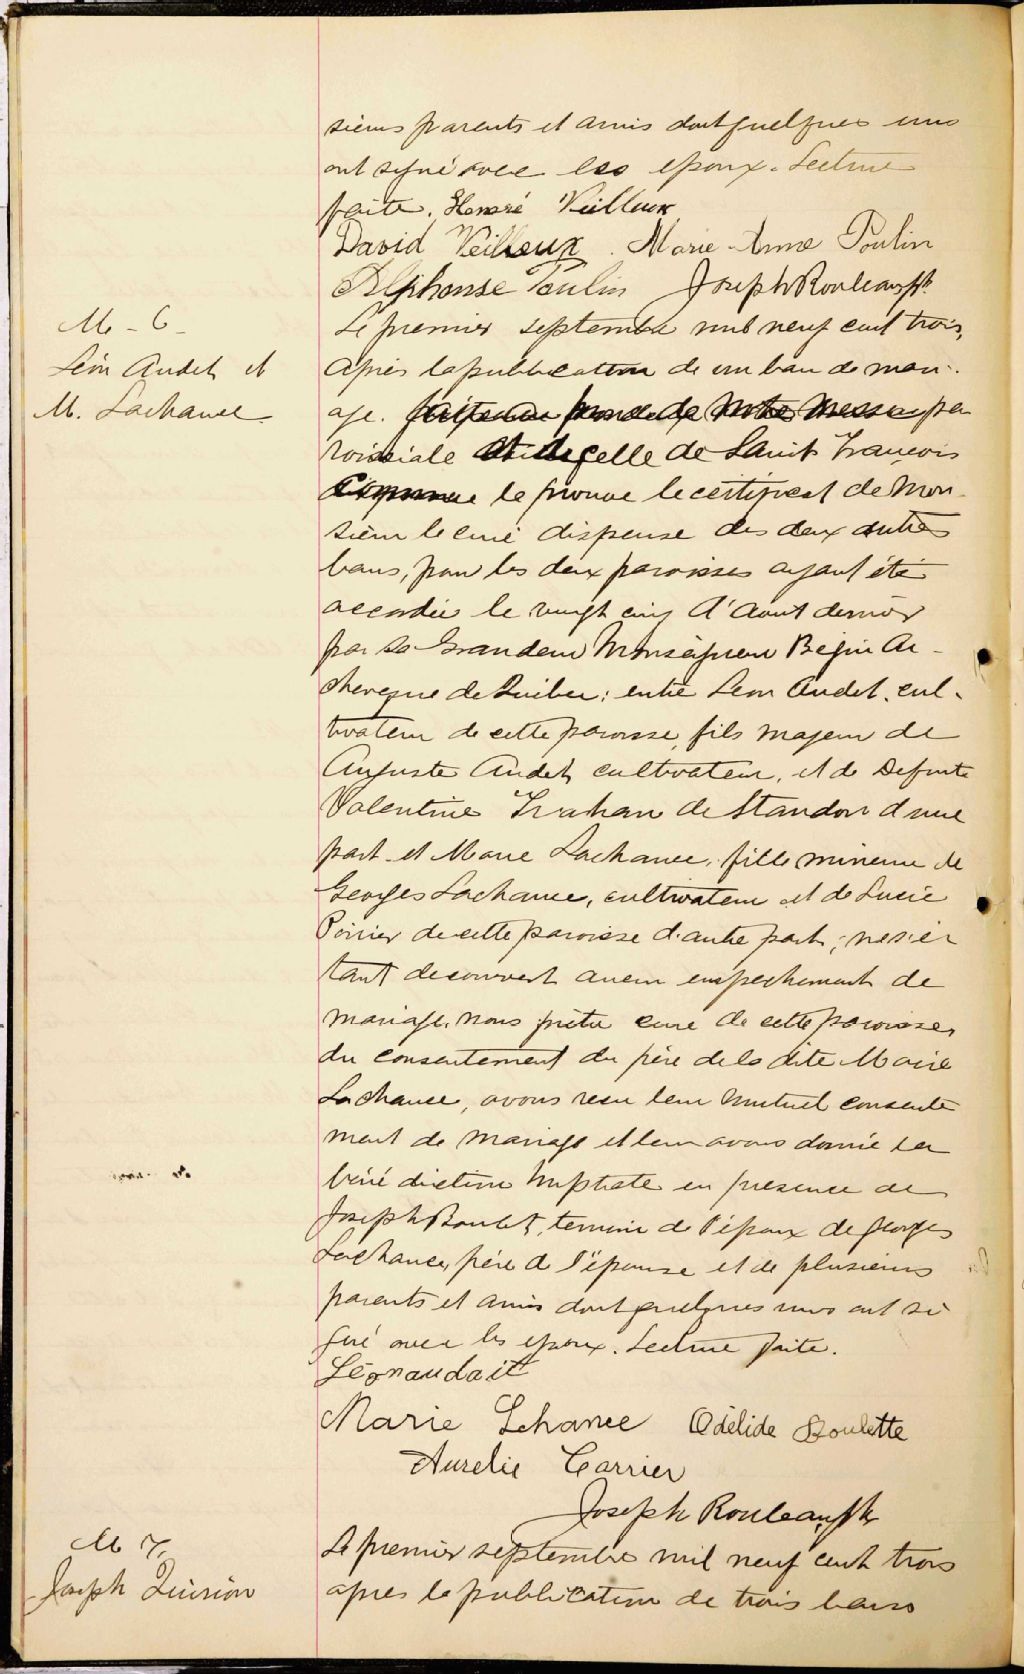 sieurs parents et amis dont quelques uns
ont signé avec les epoux. Lecture
faite. Honoré Veilleux
David Veilleux. Marie-Anne Poulin
Alphonse Poulin Joseph Rouleau ptr
M - 6 -
Léon Audet et
M. Lachance
Le premier septembre mil neuf cent trois,
Après la publication de un ban de mari-
age. pa
roissiale celle de Saint François
le prouve le certificat de Mon-
sieur le curé dispense des deux autres
bans, pour les deux paroisses ayant été
accordée le vingt cinq d'Aout dernier
par Sa Grandeur Monseigneur Bégin Ar-
cheveque de Quebec; entre Leon Audet, cul-
tivateur de cette paroisse, fils majeur de
Auguste Audet cultivateur, et de Defunte
Valentine Trahan de Standon d'une
part et Marie Lachance, fille mineure de
Georges Lachance, cultivateur et de Lucie
Poirier de cette paroisse d'autre part; ne s'é
tant decouvert aucun empechement de
mariage, nous prêtre curé de cette paroisse,
du consentement du père de la dite Marie
Lachance, avons reçu leur mutuel consente
ment de mariage et leur avons donné la
béné diction nuptiale en presence de
Joseph Boulet, temoin de l'époux de Georges
Lachance, père de l'épouse et de plusieurs
parents et amis dont quelques uns ont si
gné avec les epoux. Lecture faite.
Léonaudait
Marie Lchance Odélide Boulette
Aurelie Carrier
Joseph Rouleau ptr
M 7,
Joseph Quirion
Le premier septembre mil neuf cent trois
apres la publication de trois bans